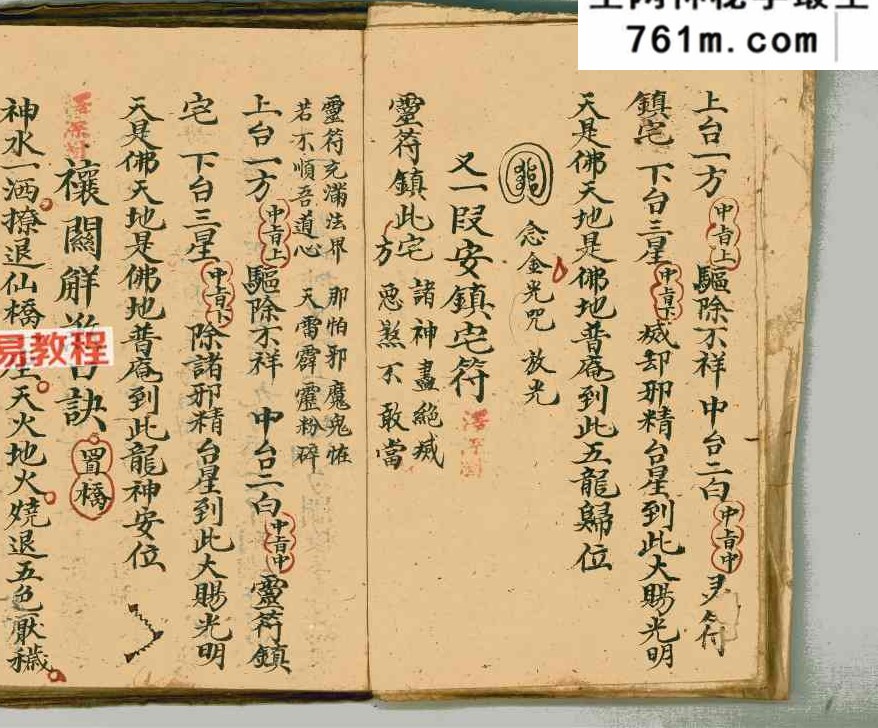 761m.com
上台一方 中指上 驅除不祥 中台二白 中指中 灵符
鎮宅 下台三星 中指下 滅却邪精 台星到此 大賜光明
天是佛天 地是佛地 普庵到此 五龍歸位
念金光咒 放光
又一段安鎮宅符
靈符鎮此宅 諸神盡絶滅
方 惡煞不敢當
靈符充滿法界 那怕邪魔鬼怪
若不順吾道心 天雷霹靂粉碎
上台一方 中指上 驅除不祥 中台二白 中指中 靈符鎮
宅 下台三星 中指下 除諸邪精 台星到此 大賜光明
天是佛天 地是佛地 普庵到此 龍神安位
禳關解 訣 置橋
神水一洒 撩退仙橋 天火地火 燒退五色厭穢
易教程